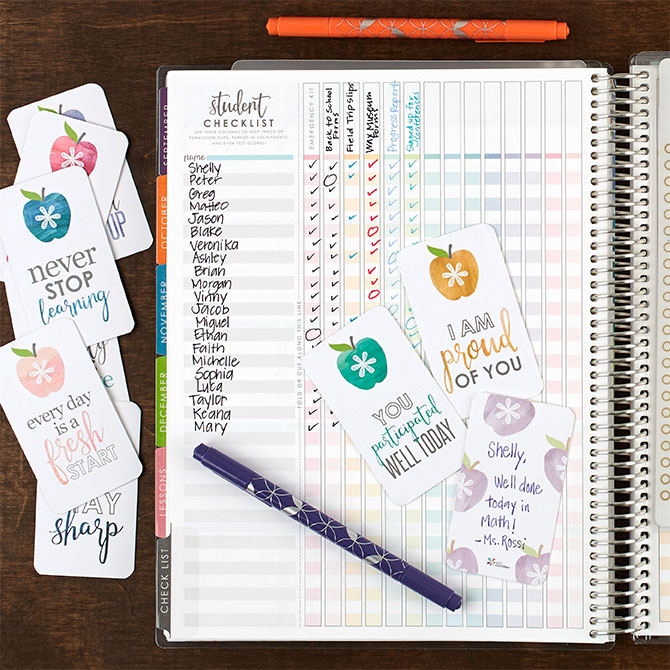 student
CHECKLIST
USE THESE COLUMNS TO EASILY TRACK UP
PERMISSION SLIPS, TURNED-IN ASSIGNMENTS,
AND EVEN TEST SCORES!
EMERGENCY KIT
Back to School
Forms
Field Trip Slips
Wax Museum
Forms
Progress Report
Signed up for
conferences
name
Shelly
Peter
Greg
Matteo
Jason
Blake
Veronika
Ashley
Brian
Morgan
Vinny
Jacob
Miguel
Ethan
Faith
Michelle
Sophia
Luka
Taylor
Keana
Mary
FOLD OR CUT ALONG THIS LINE
SEPTEMBER
OCTOBER
NOVEMBER
DECEMBER
LESSONS
CHECK LIST
UP
never
STOP
learning
every day
is a
fresh
START
sharp
I AM
proud
OF YOU
YOU
participated
WELL TODAY
Shelly,
Well done
today in
Math!
-Ms. Rossi